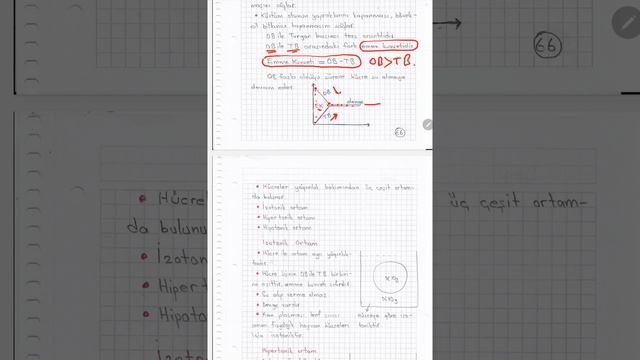 masını sağlar.
• Küstüm otunun yapraklarını kapanması, böcek-
çil bitkinin kapanmasını sağlar.
OB ile Turgor basıncı ters orantılıdır.
OB ile TB arasındaki fark emme kuvvetidir.
Emme Kuvveti = OB - TB OB>TB.
OB fazla olduğu sürece hücre su almaya
devam eder.
OB
denge
EK
TB
66
66
• Hücreler yoğunluk bakımından üç çeşit ortam-
da bulunur
• İzotonik ortam
• Hipertonik ortam
• Hipotonik ortam
İzotonik Ortam
• Hücre ile ortam aynı yoğunluk-
tadır.
• Hücre içine OB ile TB birbiri-
ne eşittir, emme kuvveti sıfırdır.
• Su alıp verme olmaz
• Denge vardır
• Kan plazması lenf sıvısı
Hücreye göre izo-
toniktir
için izotoniktir.
Hipertonik ortam
• Hücre
da bulunu
• İzoton
• Hipert
• Hipoto
üç çeşit ortam-